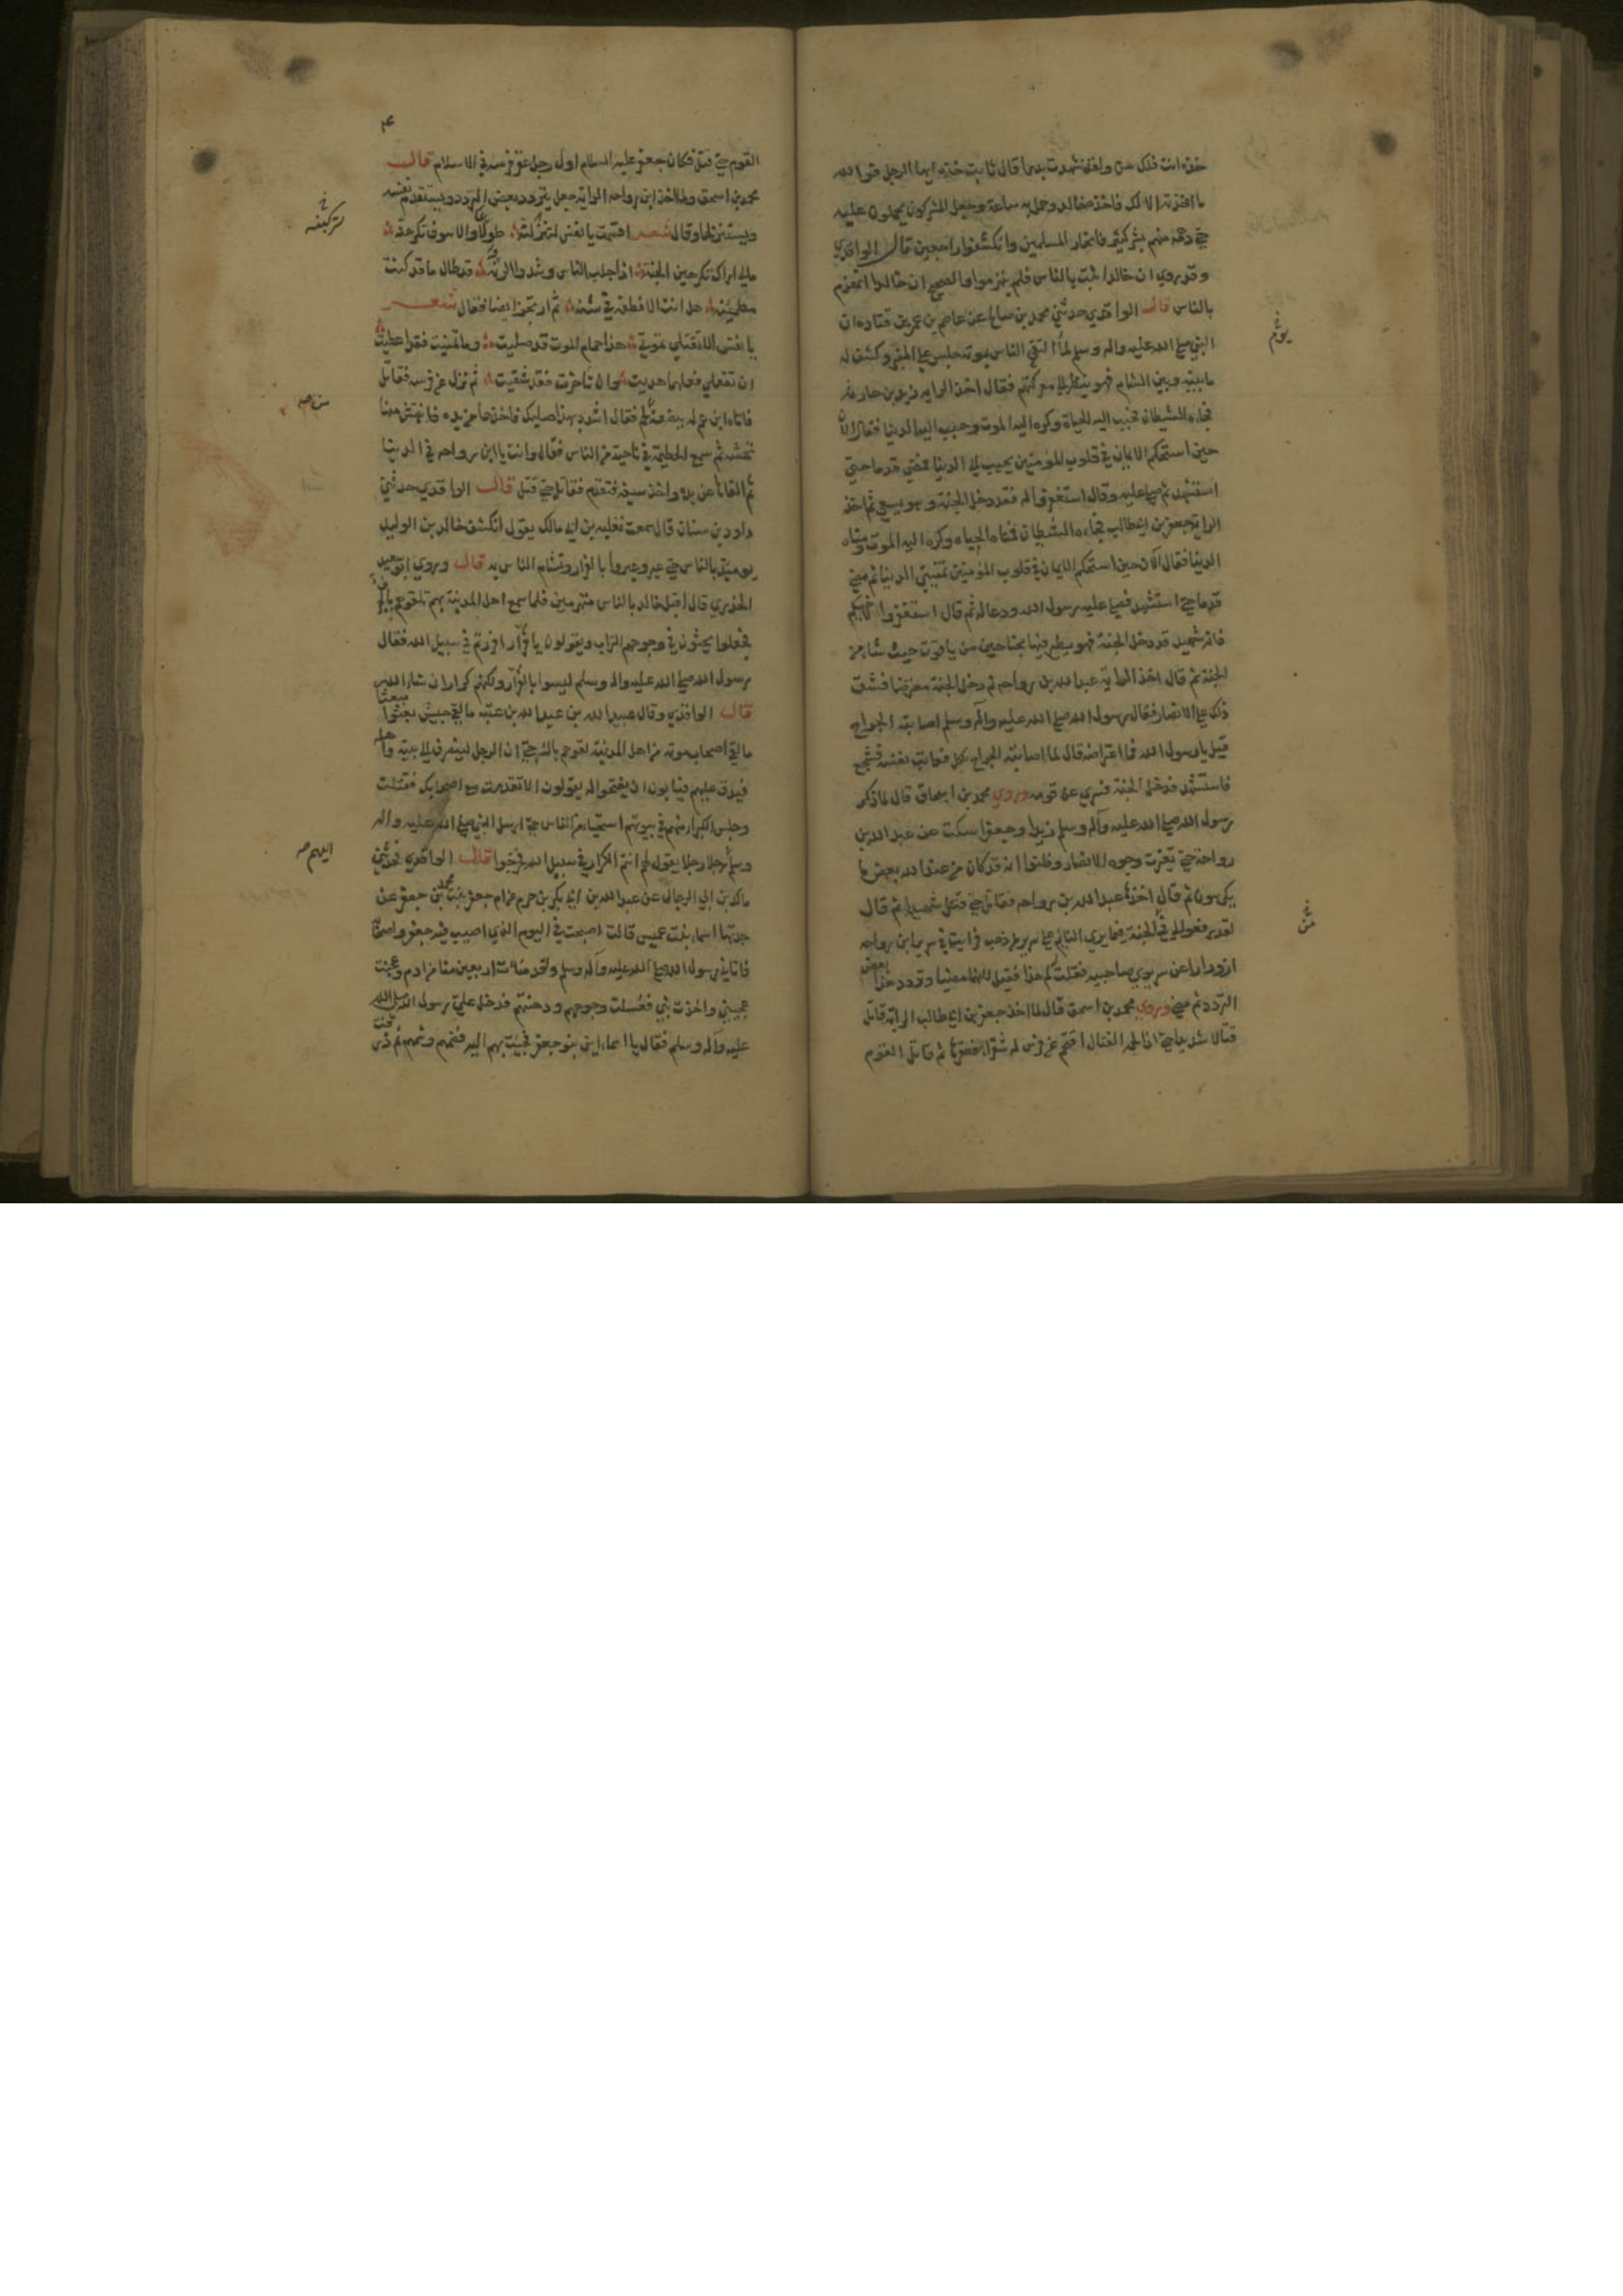 خذه انت فلك سن ولقد شهدت بدرا قال ثابت خذه ايها الرجل فوالله
ما اخذته الا لك فاخذه خالد وحمل به ساعة وجعل المشركون يحملون عليه
حتى دهمه منهم بشر كثير فانحاز المسلمين وانكشفوا راجعين قال الواقدي
وقد روي ان خالدا ثبت بالناس فلم ينهزموا والصحيح ان خالدا انهزم
بالناس قال الواقدي حدثني محمد بن صالح عن عاصم بن عمر بن قتاده ان
النبي صلى الله عليه واله وسلم لما التقى الناس بموته جلس على المنبر وكشف له
ما بينه وبين الشام فهو ينظر الى معركتهم فقال اخذ الرايه زيد بن حارثه
فجاءه الشيطان فحبب اليه الحياة وكره اليه الموت وحبب اليه الدنيا فقال الآن
حين استحكم الايمان في قلوب المؤمنين يحبب الي الدنيا فمضى قدما حتى
استشهد ثم صلى عليه وقال استغفروا له فقد دخل الجنة وهو يسعى ثم اخذ
الراية جعفر بن ابي طالب فجاءه الشيطان فمناه الحياه وكره اليه الموت ومناه
الدنيا فقال الآن حين استحكم الايمان في قلوب المؤمنين تمنيني الدنيا ثم مضى
قدما حتى استشهد فصلى عليه رسول الله ودعا له ثم قال استغفروا لاخيكم
فانه شهيد قد دخل الجنة فهو يطير فيها بجناحين من ياقوت حيث شاء من
الجنة ثم قال اخذ الراية عبد الله بن رواحه ثم دخل الجنة معترضا فشق
ذلك على الانصار فقال رسول الله صلى الله عليه وآله وسلم اصابته الجراح
قيل يا رسول الله فما اعتراضه قال لما اصابته الجراح نكل فعاتب نفسه فشجع
فاستشهد فدخل الجنة فسري عن قومه وروي محمد بن اسحاق قال لما ذكر
رسول الله صلى الله عليه وآله وسلم زيدا وجعفرا سكت عن عبد الله بن
رواحة حتى تغيرت وجوه الانصار وظنوا انه قد كان من عبد الله بعض ما
يكرهون ثم قال اخذها عبد الله بن رواحه فقاتل حتى قتل شهيدا ثم قال
لقد رفعوا لي في الجنة فيما يرى النائم على سرير من ذهب فرايت في سرير ابن رواحه
ازورارا عن سريري صاحبيه فقلت لم هذا فقيل لانهما مضيا وتردد هذا بعض
التردد ثم مضى وروي محمد بن اسحق قال لما اخذ جعفر بن ابي طالب الراية قاتل
قتالا شديدا حتى اذا لحمه القتال اقتحم عن فرس له شقراء فعقرها ثم قاتل القوم
القوم حتى قتل فكان جعفر عليه السلام اول رجل عقر فرسه في الاسلام قال
محمد بن اسحق ولما اخذ ابن رواحه الراية جعل يتردد بعض التردد ويستقدم نفسه
ويستنزلها وقال شعر اقسمت يا نفس لتنزلنه طوعا والا سوف تكرهنه
مالي اراك تكرهين الجنه اذا جلب الناس وشدوا الرنه قد طال ما قد كنت
مطمئنه هل انت الا نطفة في شنه ثم ارتجز ايضا فقال شعر
يا نفس الا تقتلي تموتي هذا حمام الموت قد صليت وما تمنيت فقد اعطيت
ان تفعلي فعلهما هديت وان تاخرت فقد شقيت ثم نزل عن فرسه فقاتل
فاتاه ابن عم له ببضعة لحم فقال اشدد بهذا صلبك فاخذها من يده فانتهش منها
نهشة ثم سمع الحطمة في ناحية من الناس فقال وانت يا ابن رواحه في الدنيا
ثم القاها من يده واخذ سيفه فتقدم فقاتل حتى قتل قال الواقدي حدثني
داود بن سنان قال سمعت ثعلبه بن ابي مالك يقول انكشف خالد بن الوليد
يومئذ بالناس حتى عيروا بالفرار وتشاءم الناس به قال وروي ابو سعيد
الخدري قال اقبل خالد بالناس منهزمين فلما سمع اهل المدينة بهم تلقوهم بالجرف
فجعلوا يحثون في وجوههم التراب ويقولون يا فرار افررتم في سبيل الله فقال
رسول الله صلى الله عليه واله وسلم ليسوا بالفرار ولكنهم كرار ان شاء الله
قال الواقدي وقال عبيد الله بن عبد الله بن عتبه ما لقي جيش بعثوا مبعثا
ما لقي اصحاب موته من اهل المدينة لقوهم بالشر حتى ان الرجل لينصرف الى بيته واهله
فيدق عليهم فيابون ان يفتحوا له يقولون الا تقدمت مع اصحابك فقتلت
وجلس الكبراء منهم في بيوتهم استحياء من الناس حتى ارسل النبي صلى الله عليه واله
وسلم رجلا رجلا يقول لهم انتم الكرار في سبيل الله فخرجوا قال الواقدي فحدثني
مالك بن ابي الرجال عن عبد الله بن ابي بكر بن حزم عن ام جعفر بنت محمد بن جعفر عن
جدتها اسماء بنت عميس قالت اصبحت في اليوم الذي اصيب فيه جعفر واصحابه
فاتاني رسول الله صلى الله عليه وآله وسلم ولقد منات اربعين منا من ادم وعجنت
عجيني واخذت بني فغسلت وجوههم ودهنتهم فدخل علي رسول الله صلى الله
عليه وآله وسلم فقال يا اسماء اين بنو جعفر فجئت بهم اليه فضمهم وشمهم ثم ذرفت
اليهم